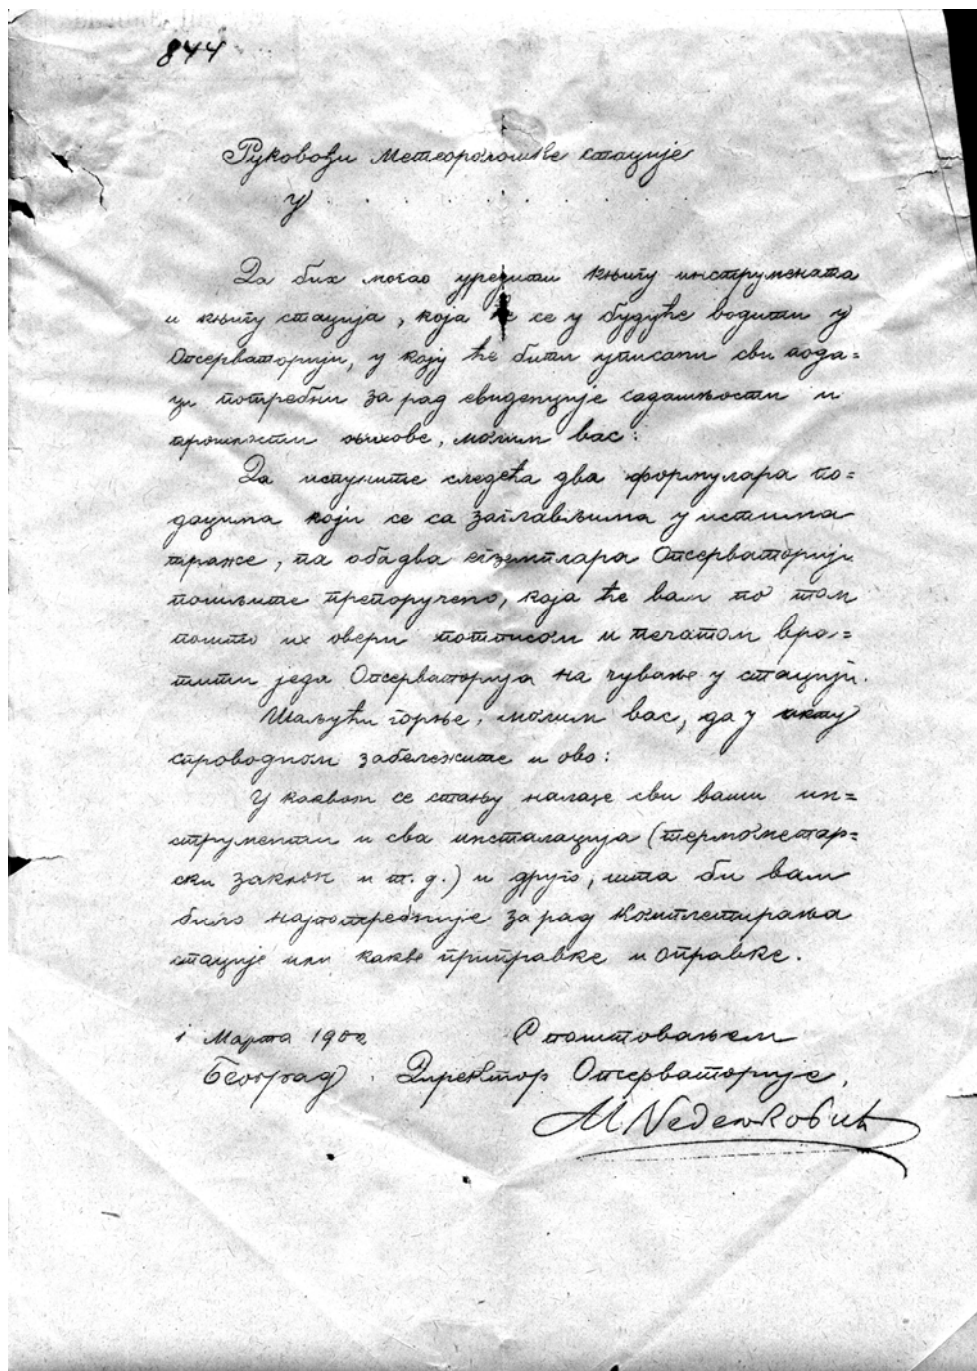 844
Руковођи Метеоролошке стације
у . . . . . . . . . .
Да бих могао уредити књигу инструмената
и књигу стација, која ће се у будуће водити у
Опсерваторији, у коју ће бити уписани сви пода=
ци потребни за рад евиденције садашњости и
прошлости њихове, молим вас:
Да испуните следећа два формулара по=
дацима који се са заглављима у истима
траже, па оба два егземплара Опсерваторији
пошљите препоручено, која ће вам по том
пошто их овери потписом и печатом вра=
тити једа Опсерваторија на чување у стацији.
Шаљући горње, молим вас, да у акту
спроводном забележите и ово:
У каквом се стању налазе сви ваши ин=
струменти и сва инсталација (термометар=
ски заклон и т. д.) и друго, шта би вам
било најпотребније за рад комплетирања
стације или какве приправке и оправке.
1 Марта 1902
С поштовањем
Београд. Директор Опсерваторије,
М Недељковић